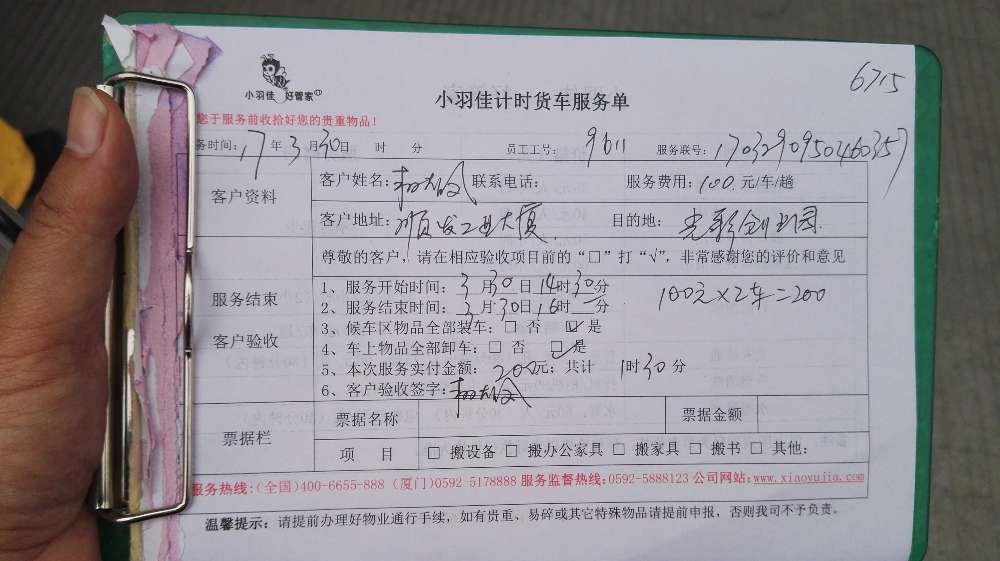 6715
小羽佳 好管家
小羽佳计时货车服务单
您于服务前收拾好您的贵重物品!
务时间: 17 年 3 月 30 日 时 分 员工工号: 9611 服务联号: 170329095046035
客户资料
客户姓名: 联系电话: 服务费用: 100 元/车/趟
客户地址: 顺发工业大厦 目的地: 光彩创业园
服务结束
客户验收
尊敬的客户,请在相应验收项目前的“□”打“√”,非常感谢您的评价和意见
1、服务开始时间: 3月30日14时30分
100元×2车=200
2、服务结束时间: 3月30日16时 分
3、候车区物品全部装车:□ 否 ☑ 是
4、车上物品全部卸车:□ 否 ☑ 是
5、本次服务实付金额: 200元;共计 1时30分
6、客户验收签字:
票据栏
票据名称 票据金额
项 目 □ 搬设备 □ 搬办公家具 □ 搬家具 □ 搬书 □ 其他:
服务热线:(全国)400-6655-888 (厦门)0592 5178888 服务监督热线:0592-5888123 公司网站:www.xiaoyujia.com
温馨提示:请提前办理好物业通行手续,如有贵重、易碎或其它特殊物品请提前申报,否则我司不予负责。